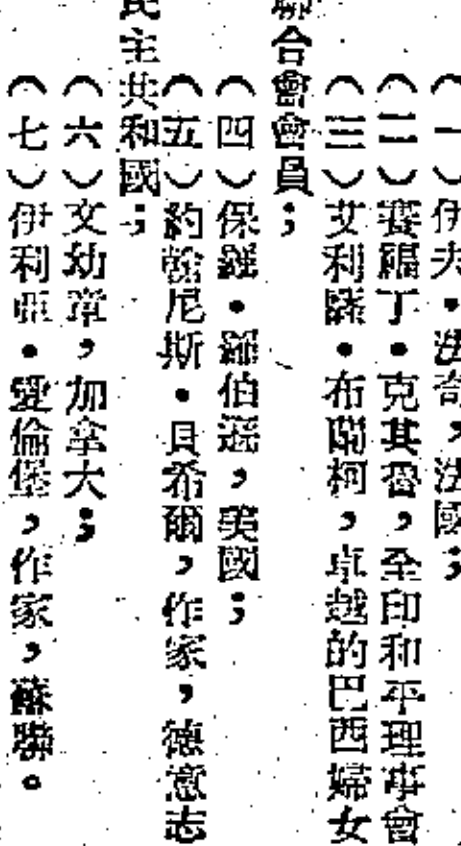 （一）伊夫・法奇，法國；
（二）賽福丁・克其魯，全印和平理事會
（三）艾利露・布蘭柯，卓越的巴西婦女
聯合會會員；
（四）保羅・羅伯遜，美國；
（五）約翰尼斯・貝希爾，作家，德意志
民主共和國；
（六）文幼章，加拿大；
（七）伊利亞・愛倫堡，作家，蘇聯。